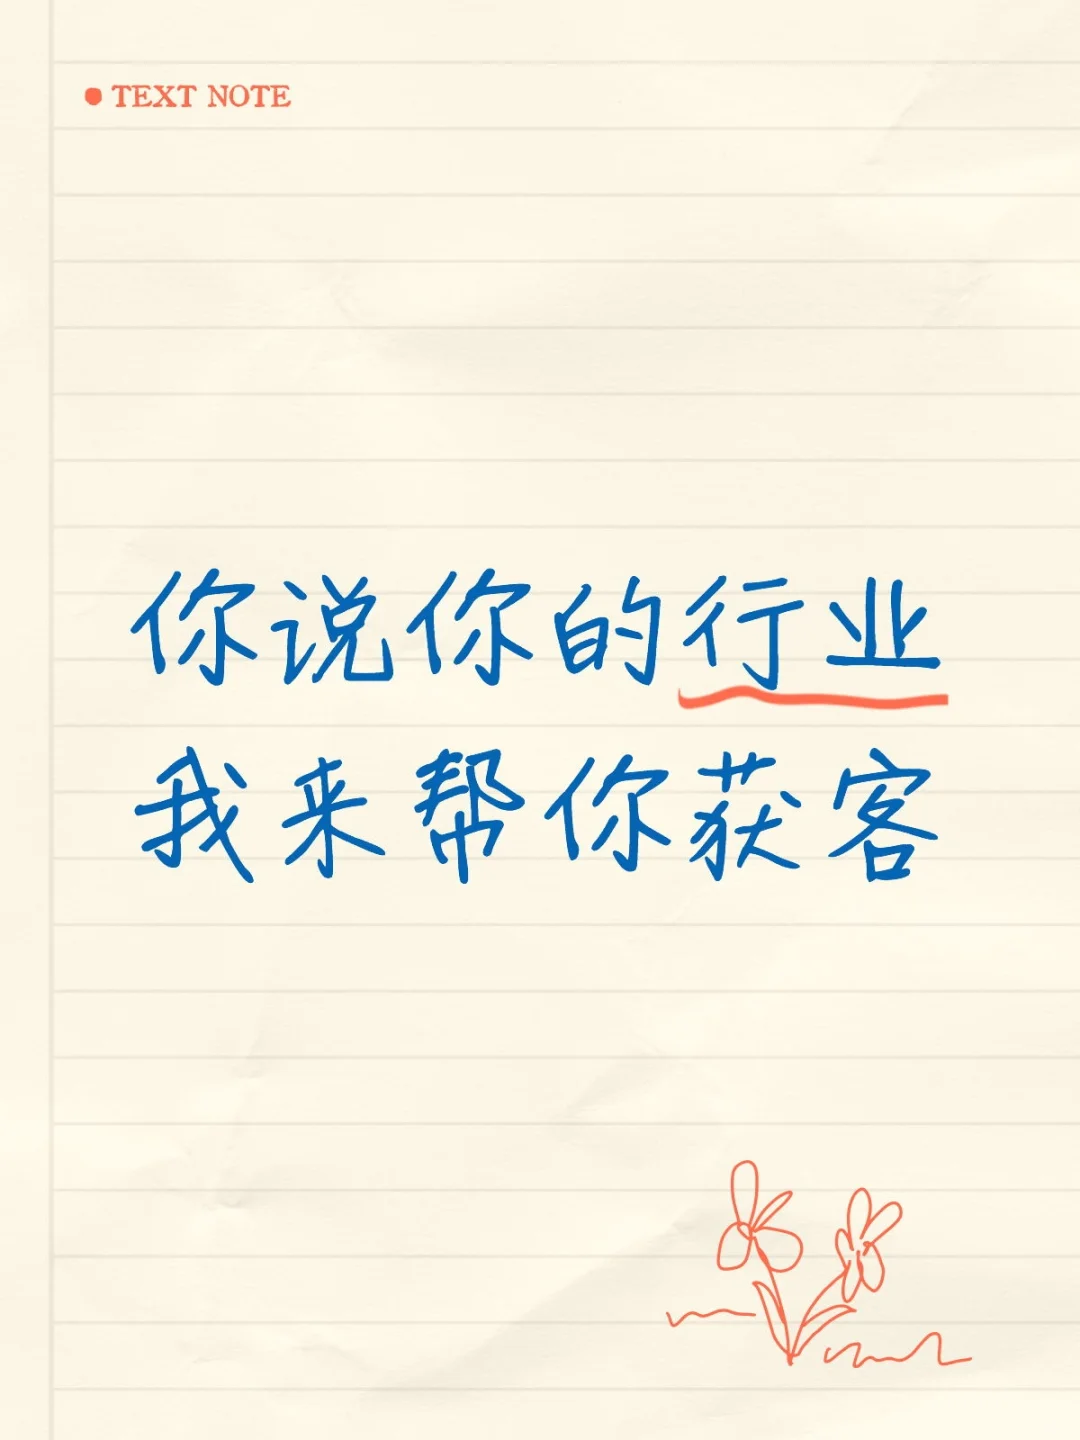 TEXT NOTE
你说你的行业
我来帮你获客